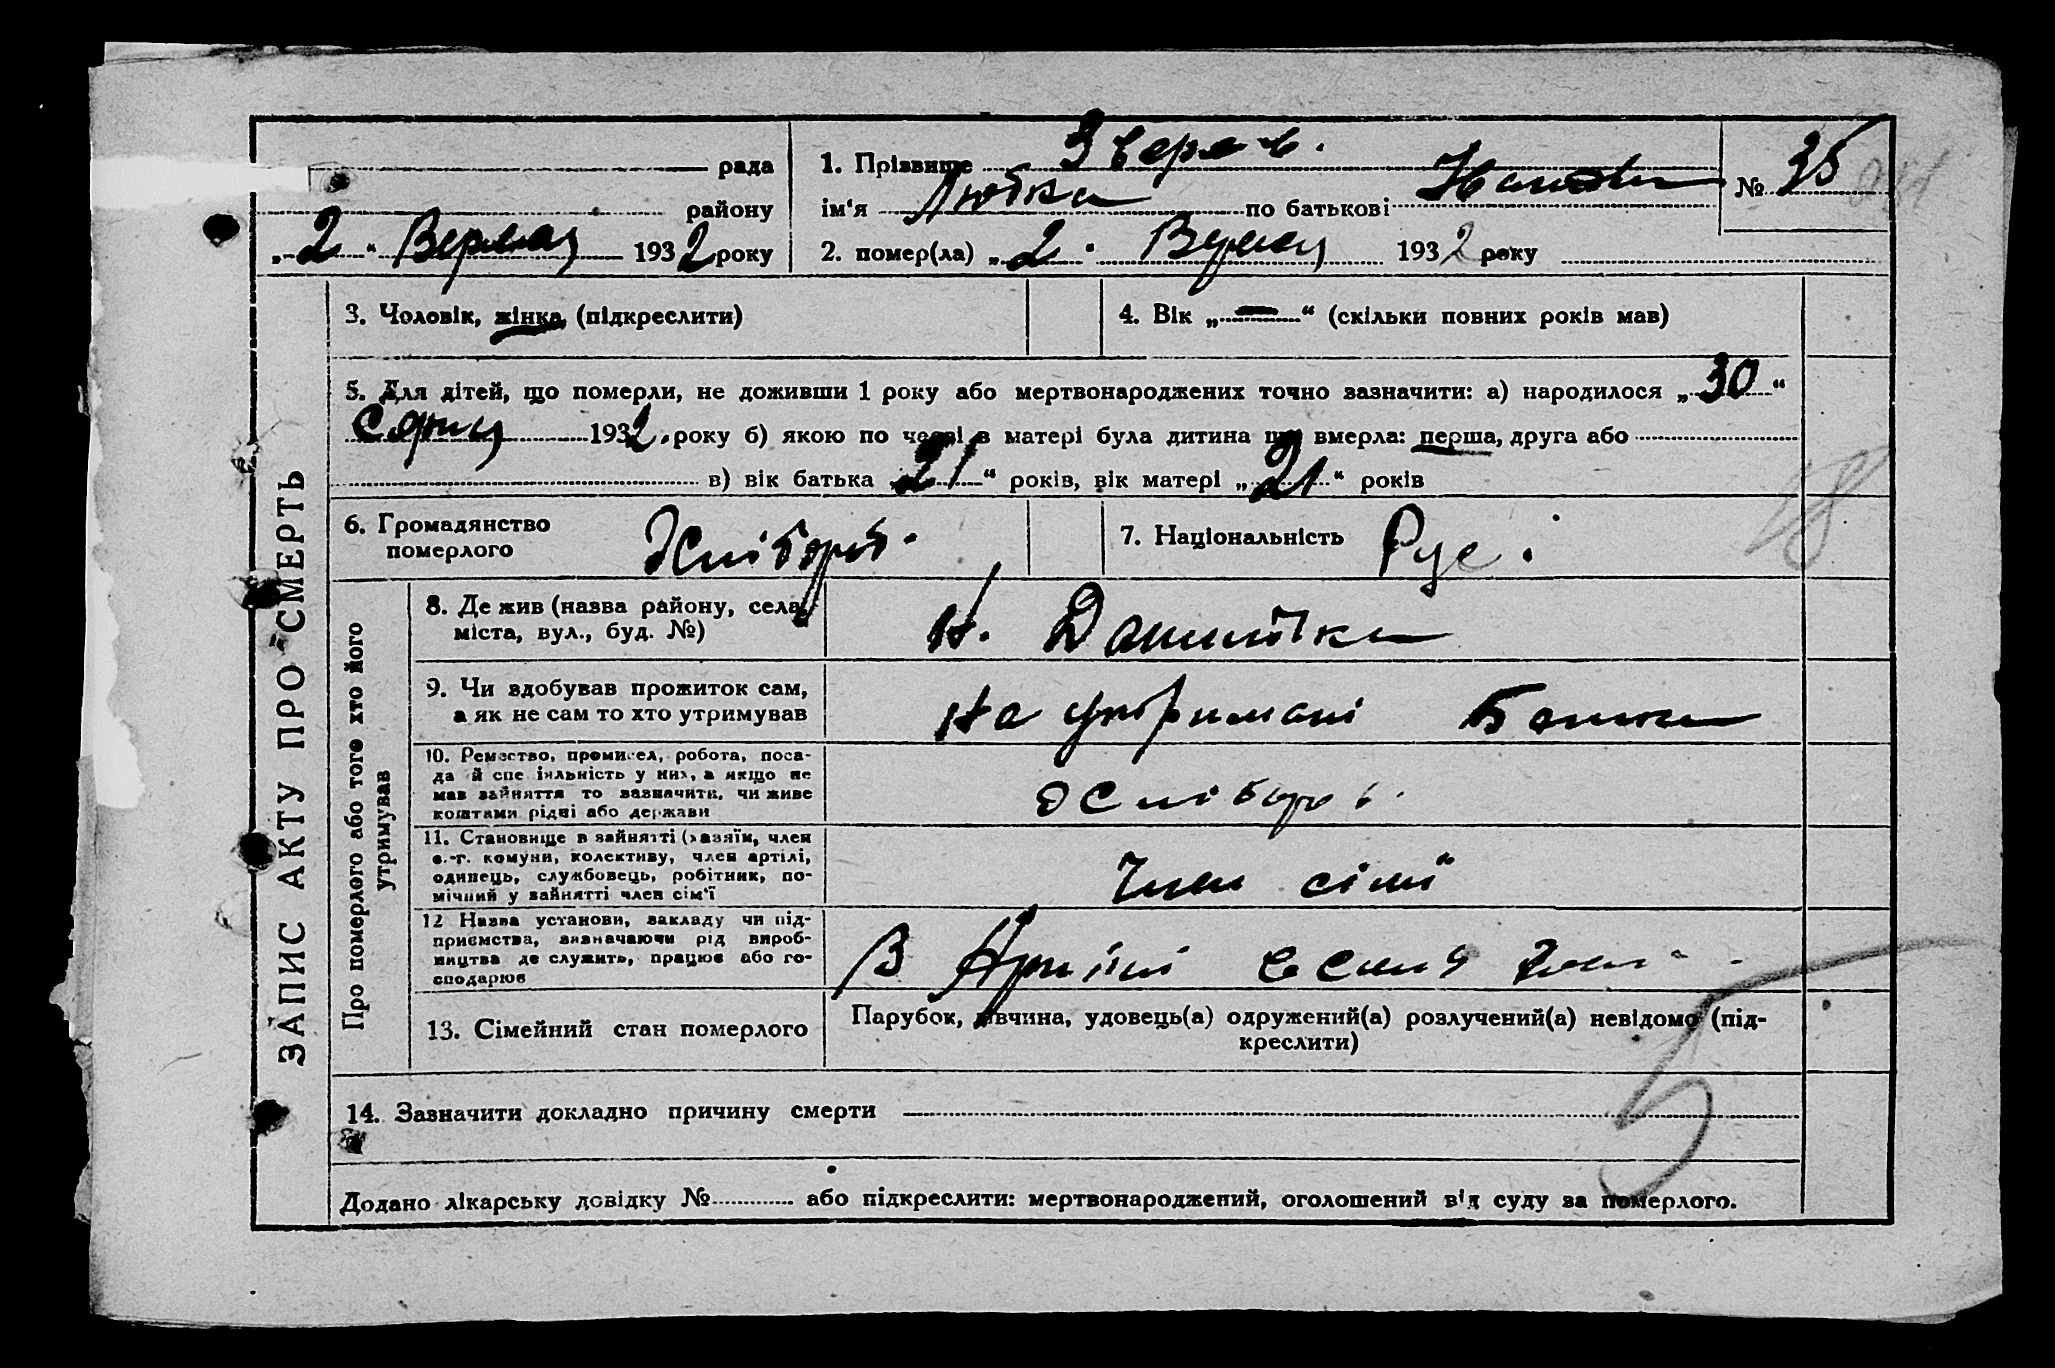 рада
району
„2“ Вересня 1932 року
1. Прізвище Зверев.
ім‘я Любка по батькові
№ 35
2. помер(ла) „2“ 1932 року
3. Чоловік, жінка (підкреслити)
4. Вік „—“ (скільки повних років мав)
5. Для дітей, що померли, не доживши 1 року або мертвонароджених точно зазначити: а) народилося „30“
Серпня 1932. року б) якою по черзі в матері була дитина що вмерла: перша, друга або
в) вік батька „21“ років, вік матері „21“ років
6. Громадянство
померлого
Хлібороб.
7. Національність Рус.
ЗАПИС АКТУ ПРО СМЕРТЬ
Про померлого або того хто його
утримував
8. Де жив (назва району, села,
міста, вул., буд. №)
Н. Данилівка
9. Чи здобував прожиток сам,
а як не сам то хто утримував
На утримані Батька
10. Ремество, промисел, робота, поса-
да й спеціяльність у них, а якщо не
мав зайняття то зазначити, чи живе
коштами рідні або держави
Хлібороб.
11. Становище в зайнятті (хазяїн, член
с.-г. комуни, колективу, член артілі,
одинець, службовець, робітник, по-
мічний у зайнятті член сім‘ї
Член сімї
12 Назва установи, закладу чи під-
приємства, зазначаючи рід вироб-
ництва де служить, працює або го-
сподарює
В Артілі
13. Сімейний стан померлого
Парубок, дівчина, удовець(а) одружений(а) розлучений(а) невідомо (під-
креслити)
14. Зазначити докладно причину смерти
Додано лікарську довідку № або підкреслити: мертвонароджений, оголошений від суду за померлого.
18
5